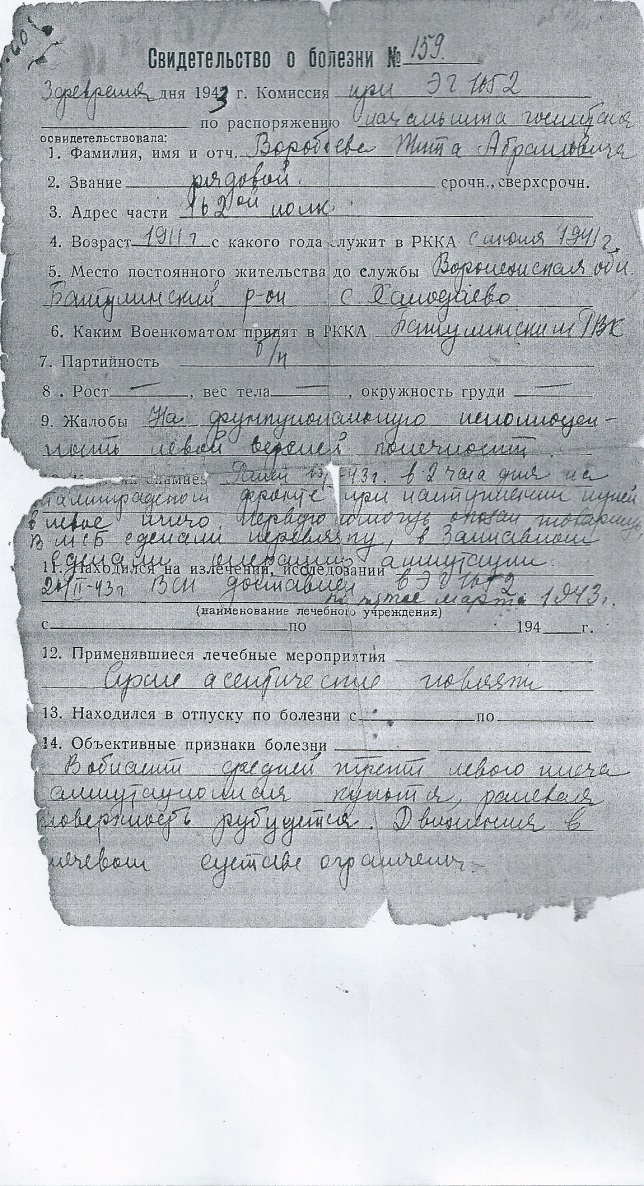 Свидетельство о болезни № 159.
3 февраля дня 1943 г. Комиссия при ЭГ 1052
по распоряжению начальника госпиталя
освидетельствовала:
1. Фамилия, имя и отч. Воробьева Абрамовича
2. Звание рядовой. срочн., сверхсрочн.
3. Адрес части 162ой полк.
4. Возраст 1911 г с какого года служит в РККА с июля 1941 г.
5. Место постоянного жительства до службы Воронежская обл.
р-он с
6. Каким Военкоматом принят в РККА РВК
7. Партийность б/п
8. Рост —, вес тела —, окружность груди —
9. Жалобы На функциональную неполноцен-
ность левой верхней конечности.
Ранен 43г. в 2 часа дня на
фронте при наступлении пулей
в левое плечо. Первую помощь оказал товарищ,
В МСБ сделали перевязку, в
сделали операцию ампутации.
11. Находился на излечении, исследовании
20/II-43г ВСП доставлен в ЭГ 1052
по пятое марта 1943г.
(наименование лечебного учреждения)
с по 194 г.
12. Применявшиеся лечебные мероприятия
Сухие асептические повязки
13. Находился в отпуску по болезни с по
14. Объективные признаки болезни
В области средней трети левого плеча
ампутационная культя, раневая
поверхность рубцуется. Движения в
плечевом суставе ограничены.